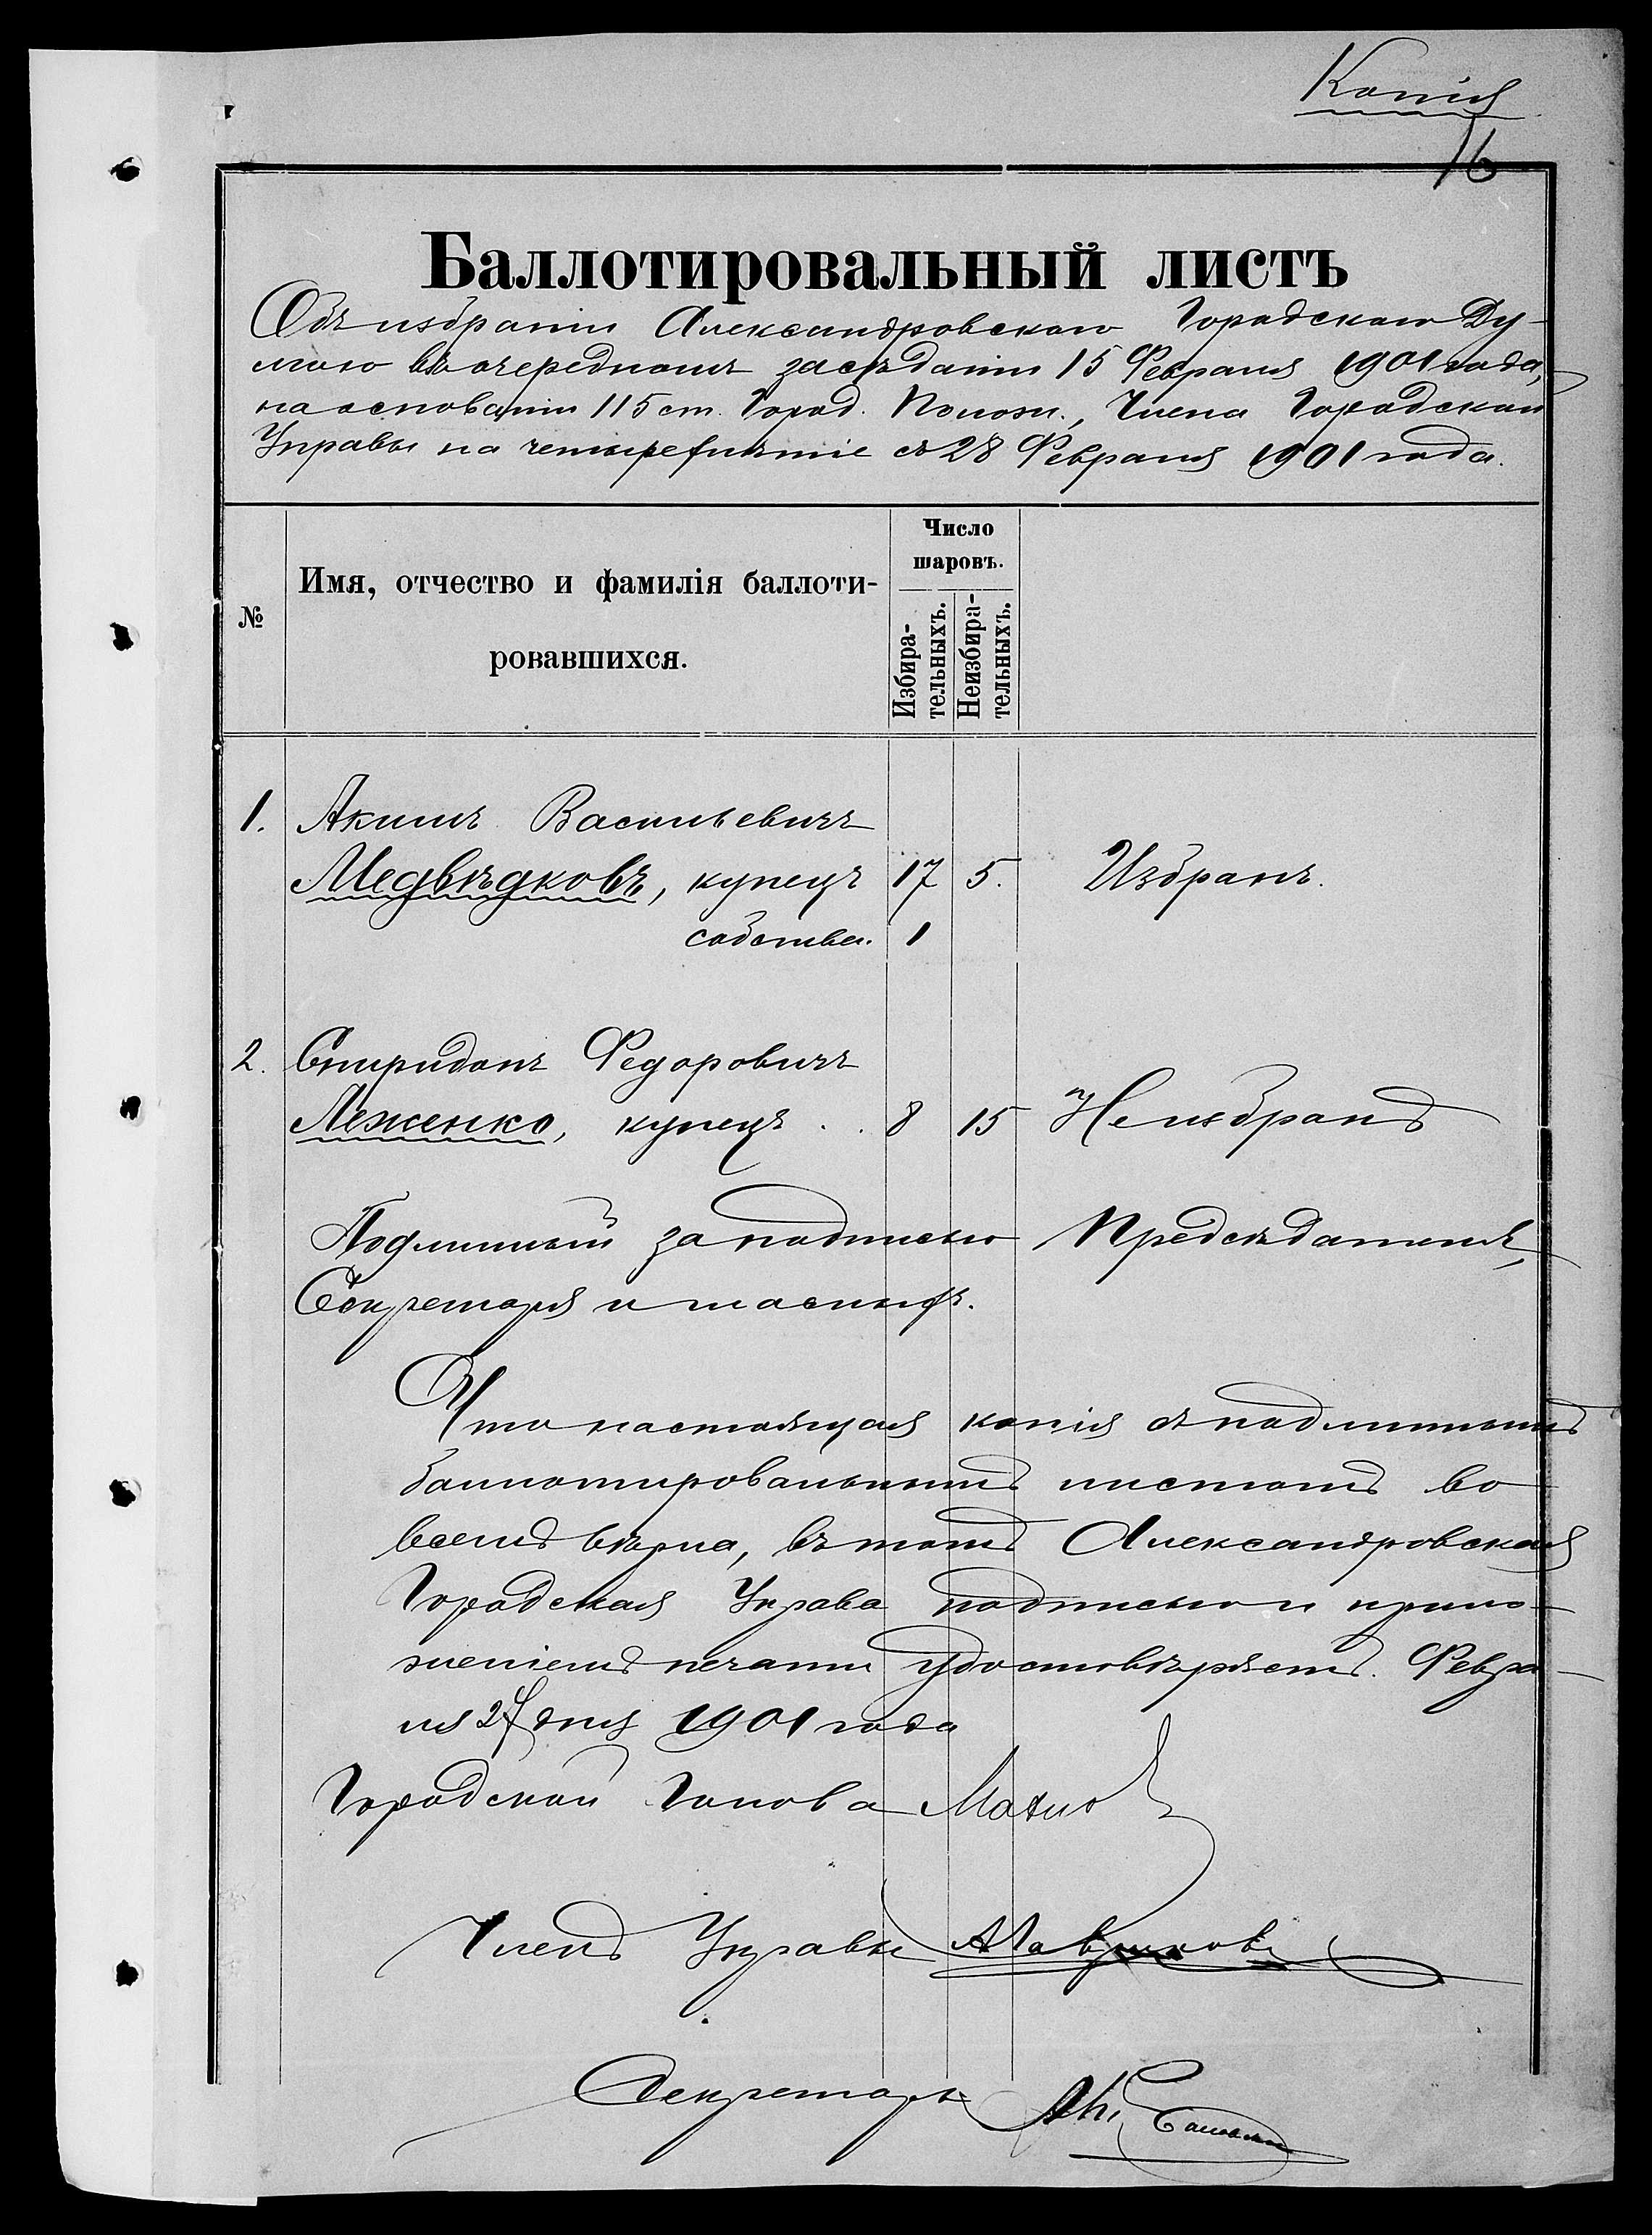 Копія
16
Баллотировальный листъ
Объ избраніи Александровскою Городскою Ду-
мою въ очередномъ засѣданіи 15 Февраля 1901 года,
на основаніи 115 ст. Город. Полож., Члена Городской
Управы на четырехлѣтіе съ 28 Февраля 1901 года.
№
Имя, отчество и фамилія баллоти-
ровавшихся.
Число
шаровъ.
Избира-
тельныхъ.
Неизбира-
тельныхъ.
1. Акимъ Васильевичъ
Медвѣдковъ, купецъ 17 5. Избранъ.
собствен. 1
2. Спиридонъ Федоровичъ
Леженко, купецъ . . 8 15 Неизбранъ
Подлинный за подписью Предсѣдателя,
Секретаря и гласныхъ.
Что настоящая копія съ подлиннымъ
баллотировальнымъ листомъ во
всемъ вѣрна, въ томъ Александровская
Городская Управа подписью и прило-
женіемъ печати удостовѣряетъ. Февра-
ля 27 дня 1901 года
Городской Голова
Членъ Управы
Секретарь